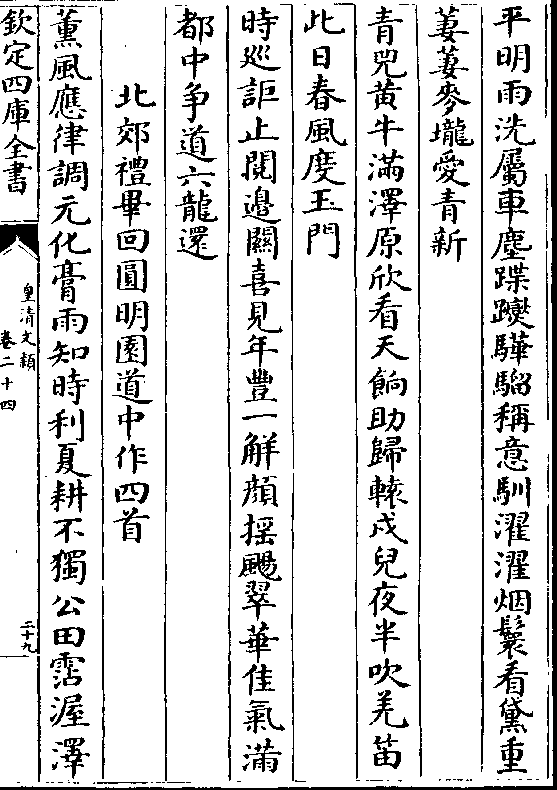 平明雨洗屬車塵蹀躞驊騮稱意馴濯濯烟鬟看黛重
萋萋麥壠愛青新
青兕黃牛滿澤原欣看天餉助歸轅戍兒夜半吹羌笛
此日春風度玉門
時巡詎止閱邊關喜見年豐一解顔揺颺翠華佳氣滿
都中争道六龍還
北郊禮畢回圓明園道中作四首
薰風應律調元化膏雨知時利夏耕不獨公田霑渥澤
欽定四庫全書
皇清文頴
卷二十四
二十九